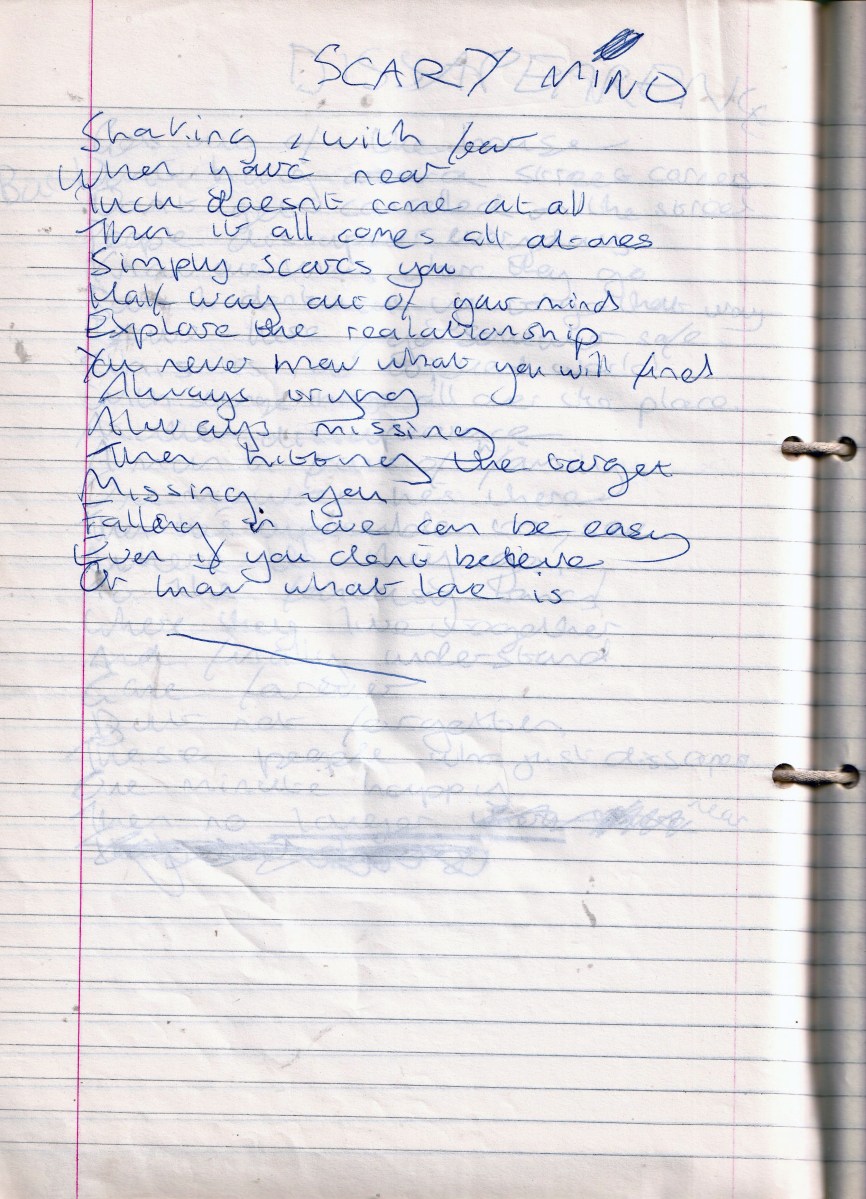 SCARY MIND
Shaking, with fear
When your'e near
Luck doesnt come at all
Then it all comes all at ones
Simply scares you
Half way out of your mind
Explore the realationship
You never know what you will find
Always
Always missing
Then hitting the target
Missing you
Falling in love can be easy
Even if you dont believe
Or know what love is